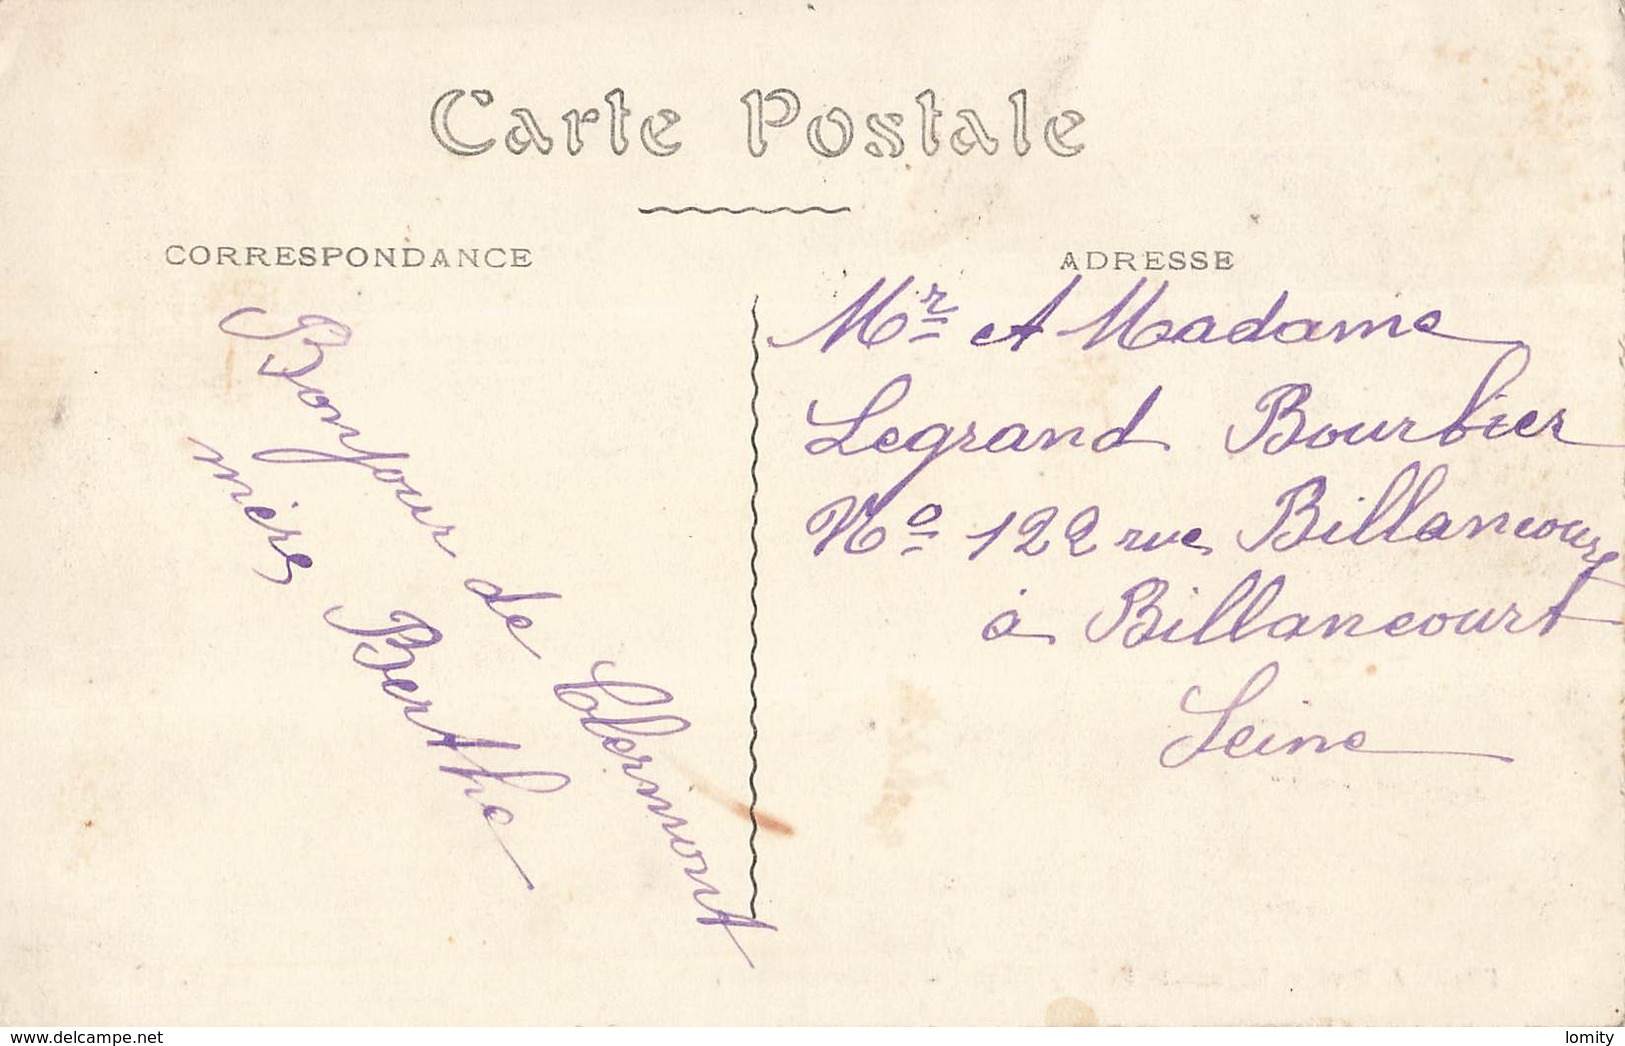 Carte Postale
CORRESPONDANCE
Bonjour de Clermont
mère Berthe
ADRESSE
Mr et Madame
Legrand Bourbier
No 122 rue Billancourt
à Billancourt
Seine
delcampe.net
lomity